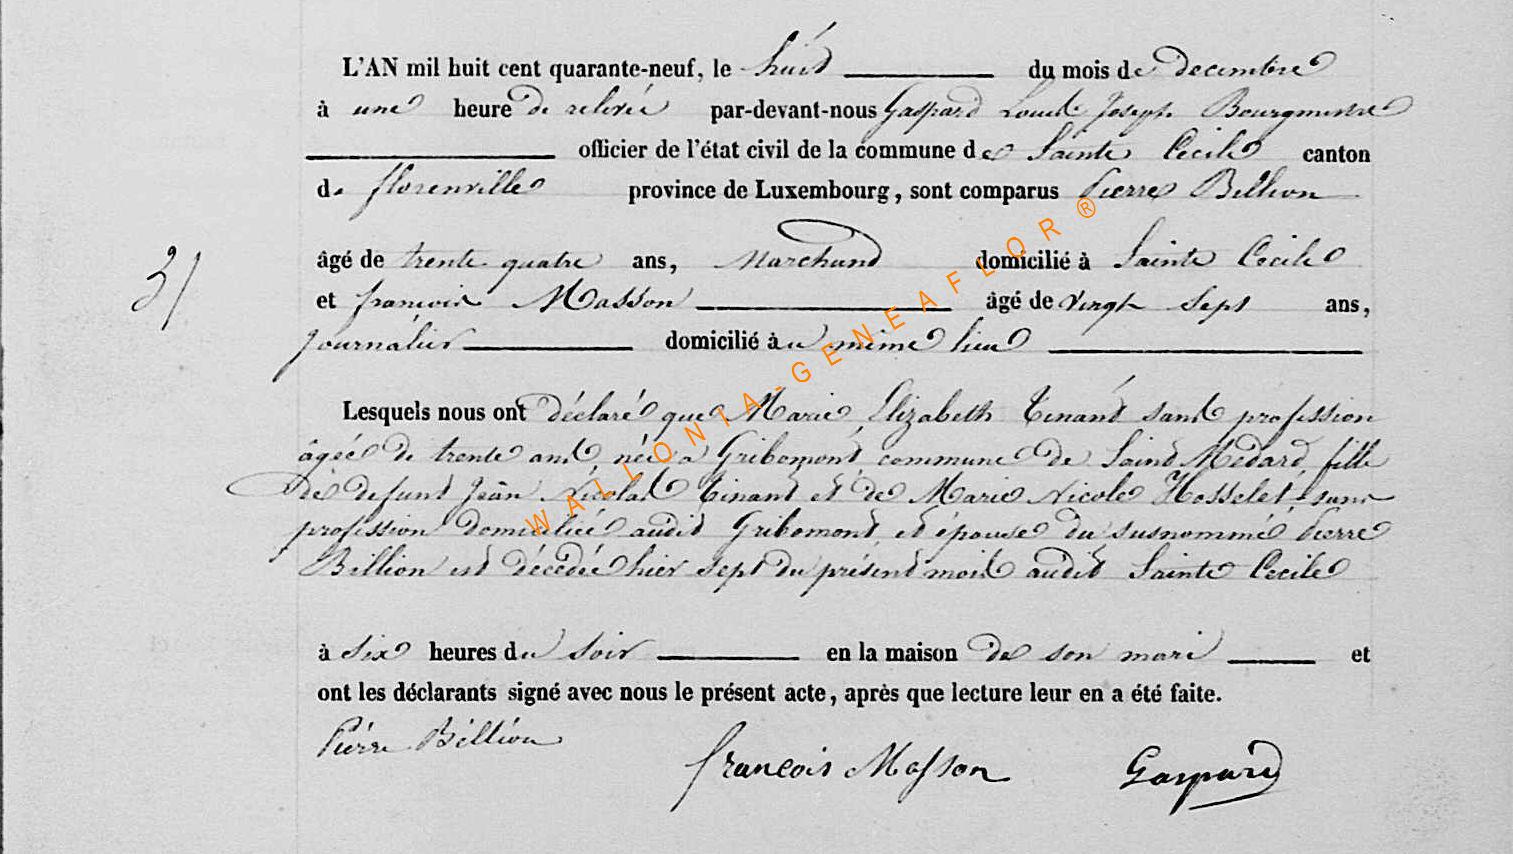 L'AN mil huit cent quarante-neuf, le huit du mois de decembre
à une heure de relevée par-devant-nous Gaspard Louis Joseph Bourgmestre
officier de l'état civil de la commune de Sainte Cecile canton
de florenville province de Luxembourg, sont comparus Pierre Billion
âgé de trente quatre ans, Marchand domicilié à Sainte Cecile
et françois Masson âgé de vingt sept ans,
journalier domicilié au même lieu
Lesquels nous ont déclaré que Marie Elizabeth Tinant sans profession
âgée de trente ans, née a Gribomont, commune de Saint Médard, fille
de defunt Jean Nicolas Tinant et de Marie Nicole Hosselet, sans
profession domiciliée audit Gribomont, et épouse du susnommé Pierre
Billion est décédée hier sept du présent mois audit Sainte Cecile
à six heures du soir en la maison de son mari et
ont les déclarants signé avec nous le présent acte, après que lecture leur en a été faite.
Pierre Billion
françois Masson Gaspard
WALLONIA-GENEAFLOR ®